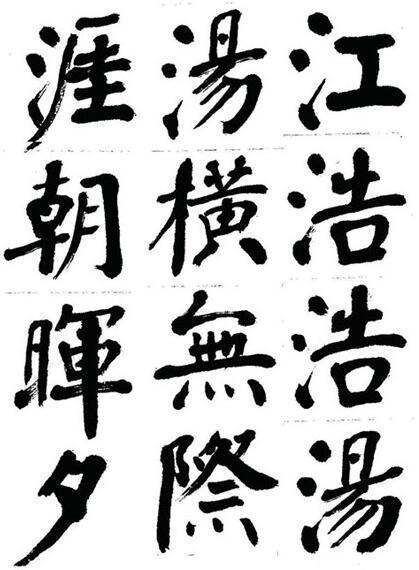 江浩浩湯
湯橫無際
涯朝暉夕